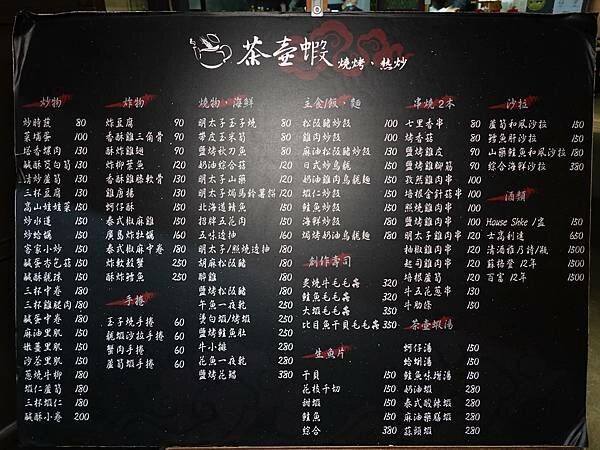 茶壺蝦 燒烤、熱炒
炒物
炒時蔬 80
菜埔蛋 100
塔香螺肉 130
鹹酥筊白筍 130
清炒蘆筍 130
三杯豆腐 130
高山娃娃菜 150
炒水蓮 150
炒蛤蠣 150
客家小炒 150
鹹蛋杏包菇 150
鹹酥龍珠 150
三杯中卷 180
三杯雞腿肉 180
鹹蛋中卷 180
麻油里肌 150
嫩薑里肌 150
沙茶里肌 150
蔥燒牛柳 180
蝦仁蘆筍 180
三杯蝦仁 180
鹹酥小卷 200
炸物
炸豆腐 90
香酥雞三角骨 90
酥炸雞翅 90
炸柳葉魚 120
香酥雞條軟骨 130
雞唐揚 130
蚵仔酥 150
泰式椒麻雞 150
廣島炸牡蠣 150
泰式椒麻中卷 180
炸軟殼蟹 260
酥炸鱈魚 250
手捲
玉子燒手捲 60
龍蝦沙拉手捲 60
蟹肉手捲 60
蘆筍蝦手捲 60
燒物、海鮮
明太子玉子燒 80
帶皮玉米筍 80
鹽烤秋刀魚 80
奶油綜合菇 120
明太子山藥 120
明太子焗馬鈴薯餅 120
北海道鮭魚 150
招牌五花肉 150
五味透抽 180
明太子/照燒透抽 180
胡麻松阪豬 180
醉雞 180
鹽烤松阪豬 180
午魚一夜乾 250
燙白蝦/烤蝦 250
鹽烤鮭魚肚 250
牛小排 280
花魚一夜乾 280
鹽烤花蝦 380
主食/飯、麵
松阪豬炒飯 100
雞肉炒飯 100
麻油松阪豬炒飯 130
日式炒烏龍 150
奶油雞肉烏龍麵 150
蝦仁炒飯 150
鮭魚炒飯 150
海鮮炒飯 180
焗烤奶油烏龍麵 180
創作壽司
炙燒牛毛毛蟲 320
鮭魚毛毛蟲 320
大蝦毛毛蟲 350
比目魚干貝毛毛蟲 350
生魚片
干貝 150
花枝千切 150
甜蝦 150
鮭魚 150
綜合 380
串燒 2本
七里香串 80
烤香菇 80
鹽烤雞皮 90
鹽烤雞腳筋 90
孜然雞肉串 100
培根金針菇串 100
照燒雞肉串 100
鹽烤雞肉串 100
明太子雞肉串 120
柚椒雞肉串 120
起司雞肉串 120
培根蘆筍 120
牛五花蔥串 130
牛肋條 150
茶壺蝦湯
蚵仔湯 150
蛤蜊湯 150
鮭魚味增湯 150
奶油蝦 280
泰式酸辣蝦 280
麻油藥膳蝦 280
蒜頭蝦 280
沙拉
蘆筍和風沙拉 150
鱈魚肝沙拉 150
山藥鮭魚和風沙拉 150
綜合海鮮沙拉 380
酒類
House Shke /盅 150
士高利達 650
清酒雅乃詩/瓶 1500
蘇格登 12年 1500
百富 12年 1500